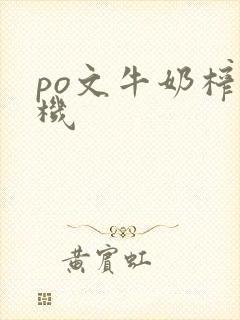 po文牛奶榨
機
黃賓虹